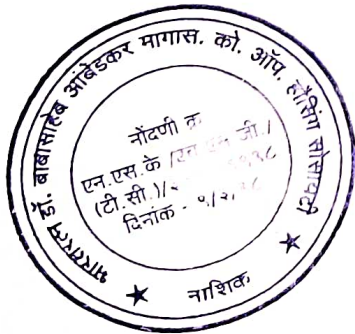 भारतरत्न डॉ. बाबासाहेब आंबेडकर मागास. को. ऑप. हौसिंग सोसायटी
नोंदणी क्र
एन.एस.के /एच जी./
(टी.सी.)/
दिनांक - १/२/
नाशिक